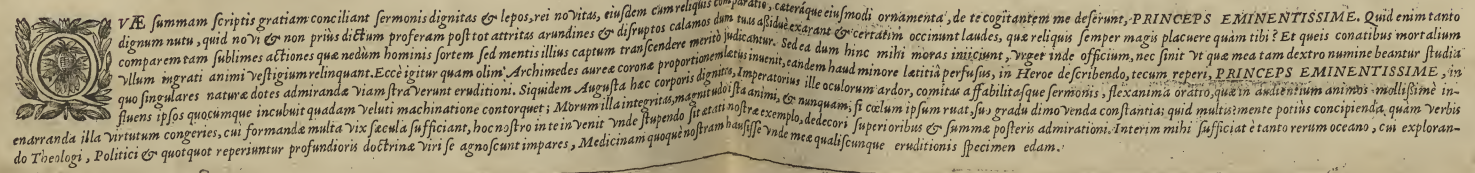 QVÆ summam scriptis gratiam conciliant sermonis dignitas & lepos, rei novitas, eiusdem cum reliquis comparatio, cæteráque eiusmodi ornamenta, de te cogitantem me deserunt, PRINCEPS EMINENTISSIME. Quid enim tanto
dignum nutu, quid novi & non priùs dictum proferam post tot attritas arundines & disruptos calamos dum tuas assiduè exarant & certatim occinunt laudes, quæ reliquis semper magis placuere quàm tibi? Et queis conatibus mortalium
comparem tam sublimes actiones quæ nedum hominis sortem sed mentis illius captum transcendere meritò judicantur. Sed ea dum hinc mihi moras iniiciunt, vrget inde officium, nec sinit vt quæ mea tam dextro numine beantur studia
vllum ingrati animi vestigium relinquant. Eccè igitur quam olim Archimedes aureæ coronæ proportionem lætus inuenit, eandem haud minore lætitiâ perfusus, in Heroe describendo, tecum reperi, PRINCEPS EMINENTISSIME, in
quo singulares naturæ dotes admirandæ viam straverunt eruditioni. Siquidem Augusta hæc corporis dignitas, Imperatorius ille oculorum ardor, comitas affabilitasque sermonis, flexanima oratio, quæ in audientium animos mollissimè in-
fluens ipsos quocumque incubuit quadam veluti machinatione contorquet; Morum illa integritas, magnitudo ista animi, & nunquam, si cœlum ipsum ruat, suo gradu dimovenda constantia; quid multis? mente potius concipienda, quàm verbis
enarranda illa virtutum congeries, cui formandæ multa vix sæcula sufficiant, hoc nostro in te invenit vnde stupendo sit ætati nostræ exemplo, dedecori superioribus & summæ posteris admirationi. Interim mihi sufficiat è tanto rerum oceano, cui exploran-
do Theologi, Politici & quotquot reperiuntur profundioris doctrinæ viri se agnoscunt impares, Medicinam quoque nostram hausisse vnde meæ qualiscunque eruditionis specimen edam.